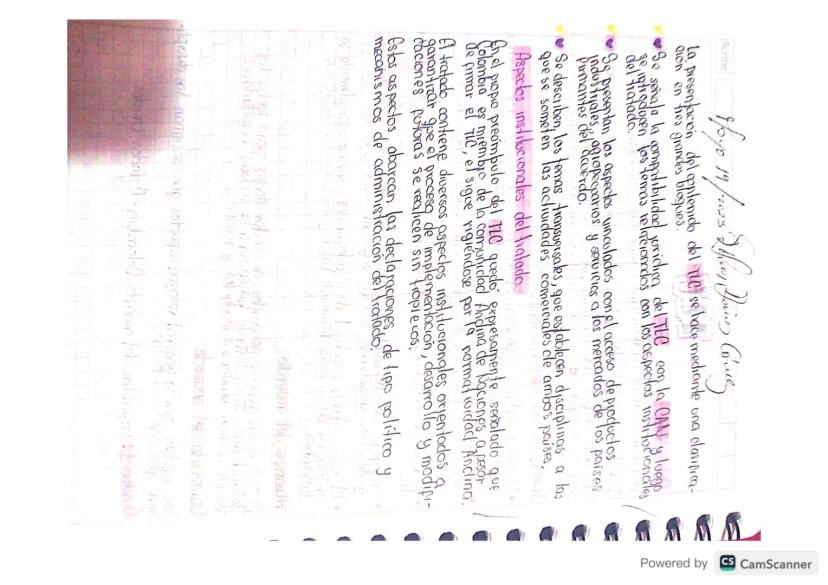 Scribe
Mayo 19/2025
La presentación de contenido del TLC se hace mediante una clasifica-
ción en tres grandes bloques.
Se señala la compatibilidad jurídica del TLC con la CAN y luego
se introducen los temas relacionados con los aspectos institucionales
del tratado.
Se presentan los aspectos vinculados con el acceso de productos
industriales, agropecuarios y servicios a los mercados de los países
firmantes del acuerdo.
Se describen los temas transversales, que establecen disciplinas a las
que se someten las actividades comerciales de ambos países.
Aspectos institucionales del tratado.
En el propio preámbulo del TLC quedó expresamente señalado que
Colombia es miembro de la comunidad Andina de Naciones a pesar
de firmar el TLC, el sigue rigiéndose por la normatividad Andina.
El tratado contiene diversos aspectos institucionales orientados a
garantizar que el proceso de implementación, desarrollo y modifi-
caciones futuras se realicen sin tropiezos.
Estos aspectos abarcan las declaraciones de tipo político y
mecanismos de administración del tratado.
Powered by CS CamScanner